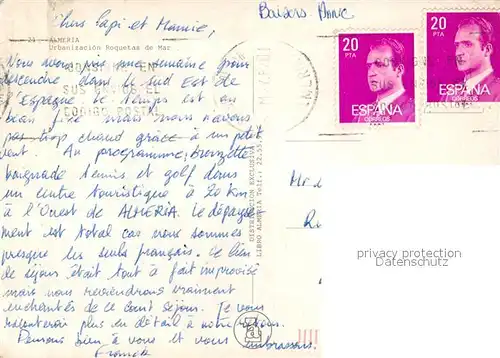 Chers Papi et Mamie,
Baisers Anne
21 ALMERIA
Urbanización Roquetas de Mar
Nous avons pris une semaine pour
descendre dans le sud Est de
l'Espagne. Le temps est au
beau fixe mais nous n'avons
pas trop chaud grâce à un petit
vent. Au programme, bronzette
baignade tennis et golf dans
un centre touristique à 20 km
à l'Ouest de ALMERIA. Le dépayse-
ment est total car nous sommes
presque les seuls français. Le lieu
de séjour était tout à fait improvisé
mais nous reviendrons vraiment
enchantés de ce court séjour. Je vous
raconterai plus en détail à notre retour.
Pensons bien à vous et vous embrassons.
Franck
SUS ENVIOS EL
CODIGO POSTAL
20
PTA
ESPAÑA
CORREOS
20
PTA
ESPAÑA
CORREOS
DISTRIBUCION EXCLUSIVA
LIBRO ALMERIA Telf.: 22.55.
privacy protection
Datenschutz